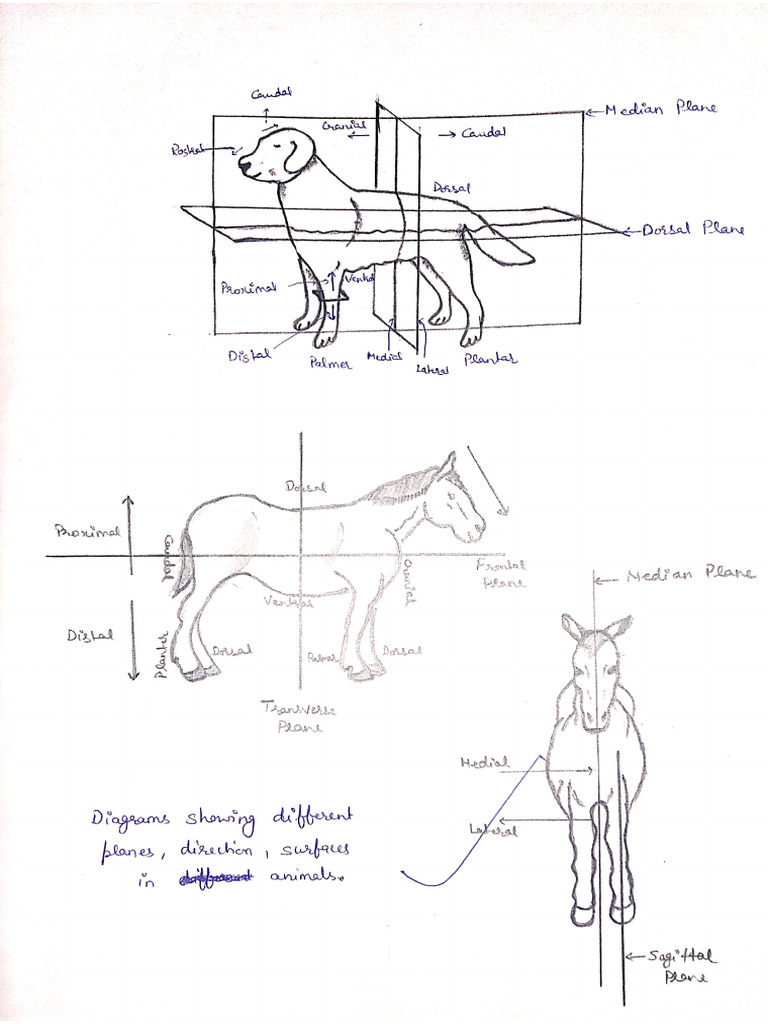 Caudal
Cranial
Caudal
Median Plane
Rostral
Dorsal
Dorsal Plane
Proximal
Ventral
Distal
Palmer
Medial
Lateral
Plantar
Dorsal
Proximal
Caudal
Cranial
Frontal
Plane
Median Plane
Ventral
Distal
Planter
Dorsal
Palmer
Dorsal
Transverse
Plane
Medial
Lateral
Diagrams showing different
planes, direction, surfaces
in animals.
Sagittal
Plane